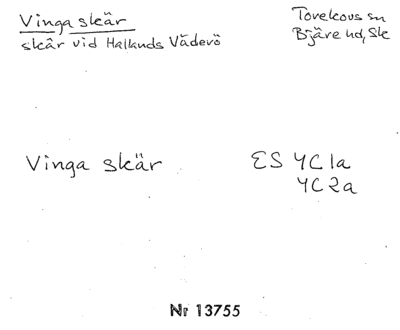 Vinga skär
skär vid Hallands Väderö
Torekovs sn
Bjäre hd, Sk
Vinga skär
ES 4C1a
4C2a
Nr 13755